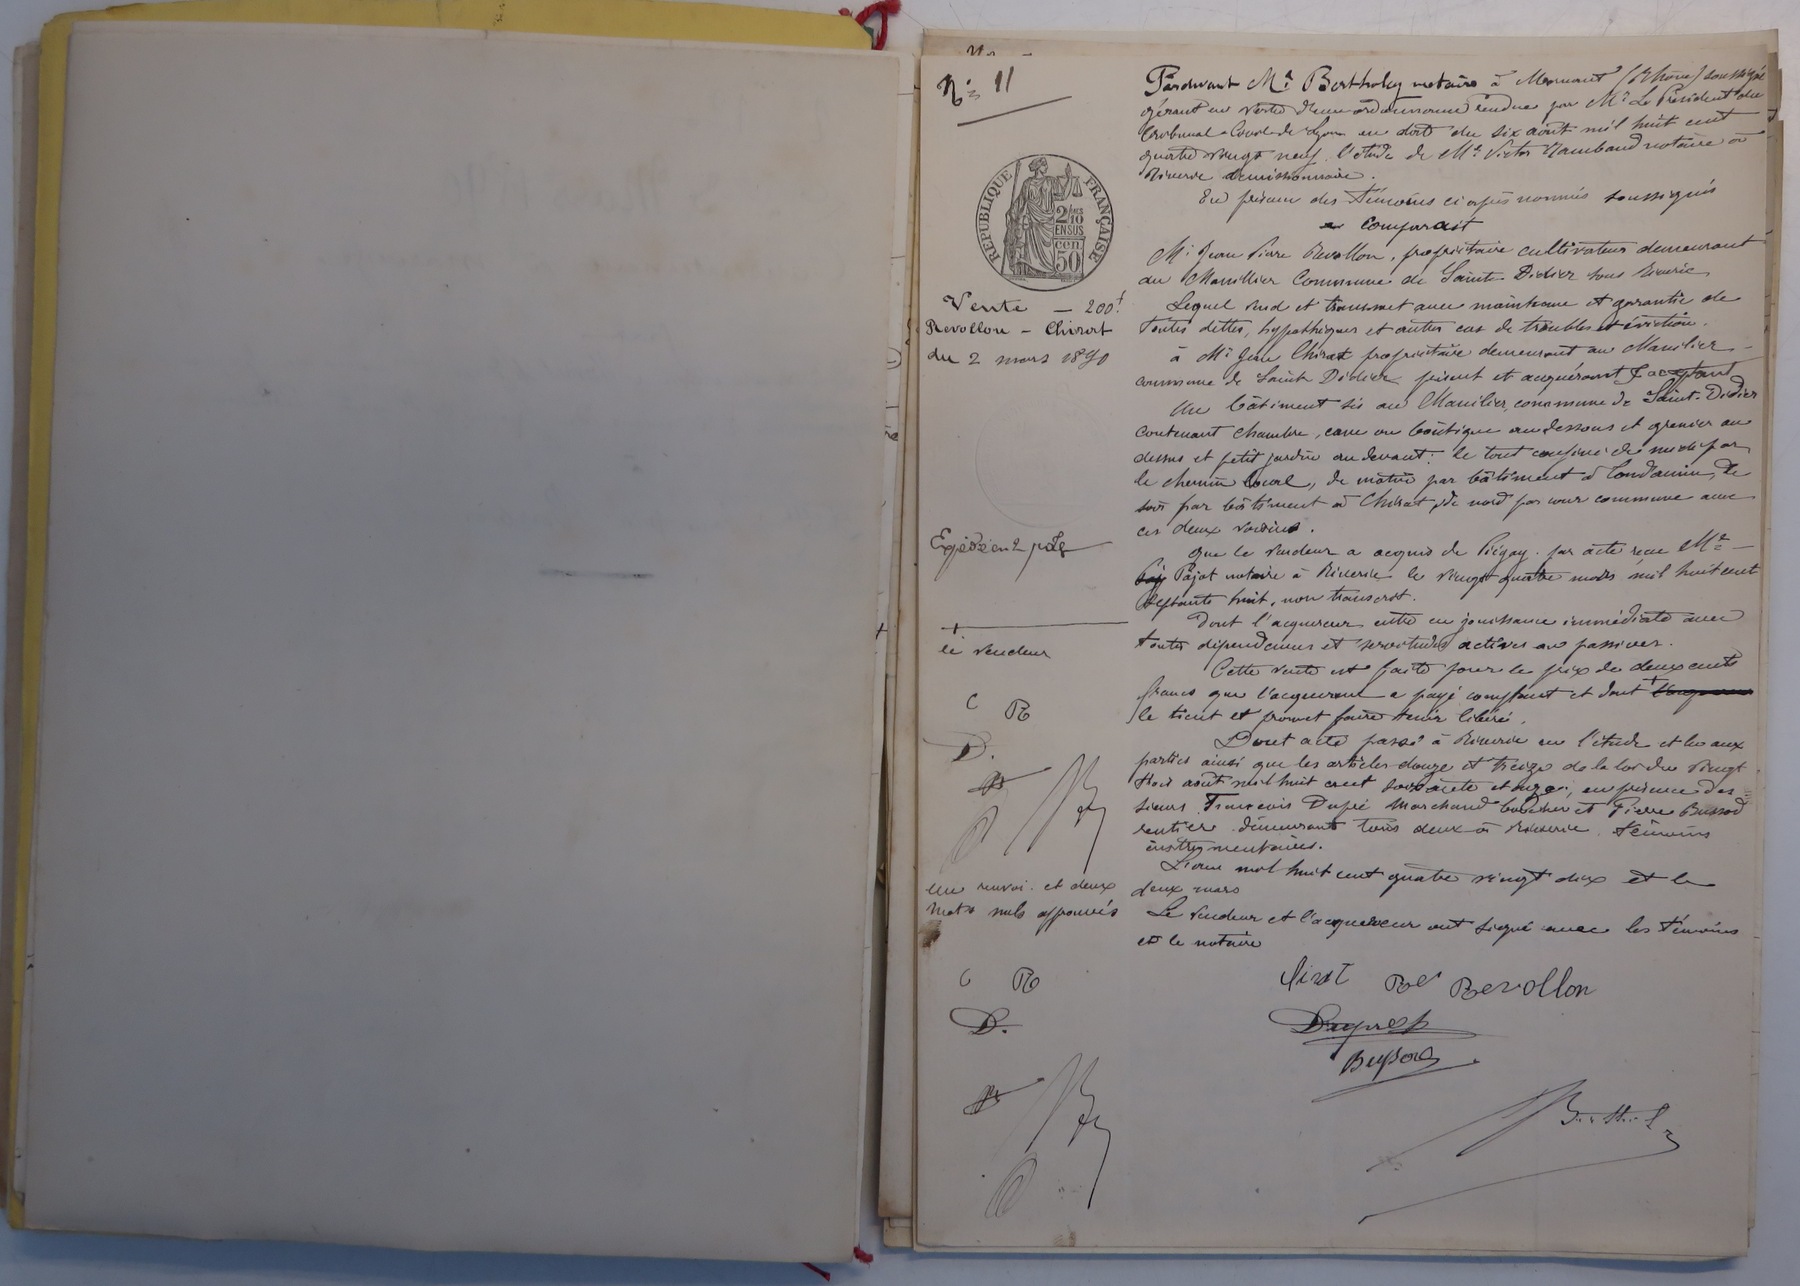 N° 11
RÉPUBLIQUE FRANÇAISE
2/10
EN SUS
50 cen
Vente — 200f
Revollon — Chirat
du 2 mars 1890
Expédié en 2 
+
le vendeur
C R
D.
un renvoi et deux
mots nuls approuvés
C R
D.
Pardevant Me Bertholey notaire à Mornant (Rhône) soussigné
gérant en vertu d'une ordonnance rendue par Mr Le Président du
tribunal Civil de Lyon en date du six août mil huit cent
quatre vingt neuf, l'étude de Me Victor notaire à
Riverie démissionnaire.
En présence des témoins ci après nommés soussignés
a comparu
Mr Jean Pierre Revollon, propriétaire cultivateur demeurant
au Manillier Commune de Saint Didier sous Riverie
Lequel vend et transmet avec maintenue et garantie de
toutes dettes, hypothèques et autres cas de troubles et éviction.
à Mr Jean Chirat propriétaire demeurant au Manilier
commune de Saint Didier présent et acquéreur acceptant
Un bâtiment sis au Manilier, commune de Saint-Didier
contenant chambre, cave ou boutique au dessous et grenier au
dessus et petit jardin au devant: le tout confiné de midi par
le chemin local, de matin par bâtiment à Condamin, de
soir par bâtiment à Chirat, de nord par cour commune avec
ces deux voisins.
Que le vendeur a acquis de Piégay par acte reçu Me
Pajot notaire à Riverie le vingt quatre mars mil huit cent
septante huit, non transcrit.
Dont l'acquéreur entre en jouissance immédiate avec
toutes dépendances et servitudes actives ou passives.
Cette vente est faite pour le prix de deux cents
francs que l'acquéreur a payé comptant et dont +
le tient et promet faire tenir libéré.
Dont acte passé à Riverie en l'étude et lu aux
parties ainsi que les articles douze et treize de la loi du vingt
trois août mil huit cent soixante et onze, en présence des
sieurs François Dupré marchand boucher et Pierre Bussod
rentier demeurant tous deux à Riverie témoins
instrumentaires.
L'an mil huit cent quatre vingt dix et le
deux mars
Le vendeur et l'acquéreur ont signé avec les témoins
et le notaire
Revollon